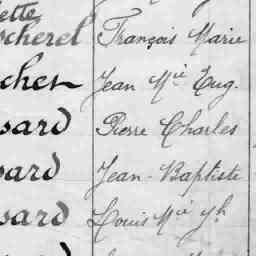 ette
scherel François Marie
ches Jean Mie Eug.
sard Pierre Charles
sard Jean-Baptiste
sard Louis Mie Jh